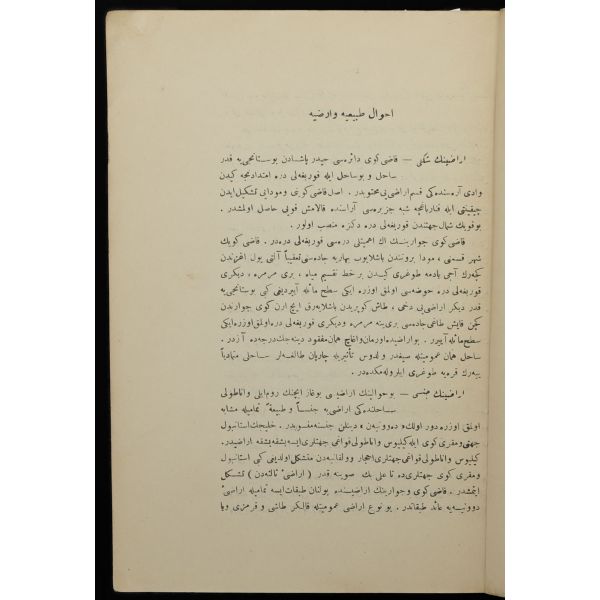 احوال طبيعيه وارضيه
اراضينك شكلی — قاضی كوی دائره‌سی حيدر پاشادن بوستانجی‌يه قدر
ساحل و بوساحل ايله قوربغه‌لی دره امتدادنجه كيدن
وادی آره‌سنده‌كی قسم اراضی‌یی محتويدر . اصل قاضی كوينی ومودایی تشكيل ايدن
چيقينتی ايله فنار باغچه شبه جزيره‌سی آراسنده قالامش قویی حاصل اولمشدر .
بوقويك شمال جهتندن قوربغه‌لی دره دكزه منصب اولور .
قاضی كوی جوارينك اك اهميتلی دره‌سی قوربغه‌لی دره‌در . قاضی كويك
شهر قسمنی ، مودا برونندن باشلايوب بهاريه جاده‌سنی تعقيباً آلتی يول آغزندن
كچه‌رك آجی بادمه طوغری كيدن بر خط تقسيم مياه ، بری مرمره ، ديكری
قوربغه‌لی دره حوضه‌سی اولمق اوزره ايكی سطح مائله آييرديغی كبی بوستانجی‌يه
قدر ديكر اراضی‌یی دخی ، طاش كوپريدن باشلايه‌رق ايچ ارن كوی جوارندن
كچن قايش طاغی جاده‌سی بری ينه مرمره وديكری قوربغه‌لی دره اولمق اوزره ايكی
سطح مائله آييرر . بواراضيده اورمان واغاج همان مفقود دينه‌جك درجه‌ده آزدر .
ساحل همان عموميتله سيغدر و لدوس تأثيريله چارپان طالغه‌لر ساحلی متمادياً
ييه‌رك قره‌يه طوغری ايلروله‌مكده‌در .
اراضينك جنسی — بوحوالينك اراضيسی بوغاز ايچنك روم‌ايلی و اناطولی
ساحلنده‌كی اراضی‌يه جنساً و طبيعةً تماميله مشابه
اولمق اوزره دور اولك «ده‌وونيه‌ن» دينلن جنسنه منسوبدر . خليجك استانبول
جهتی ومقری كوی ايله كيليوس واناطولی قواغی جهتلری ايسه بشقه بشقه اراضيدر .
كيليوس واناطولی قواغی جهتلری احجار وولقانيه‌دن متشكل اولديغی كبی استانبول
ومقری كوی جهتلری‌ده تا علی بك صوينه قدر ( اراضئ ثالثه‌دن ) تشكل
ايتمشدر . قاضی كوی و جوارينك اراضيسنده بولنان طبقات ايسه تماميله اراضئ
دوونيه‌يه عائد طبقاتدر . بو نوع اراضی عموميتله قالكر طاشی و قرمزی ويا